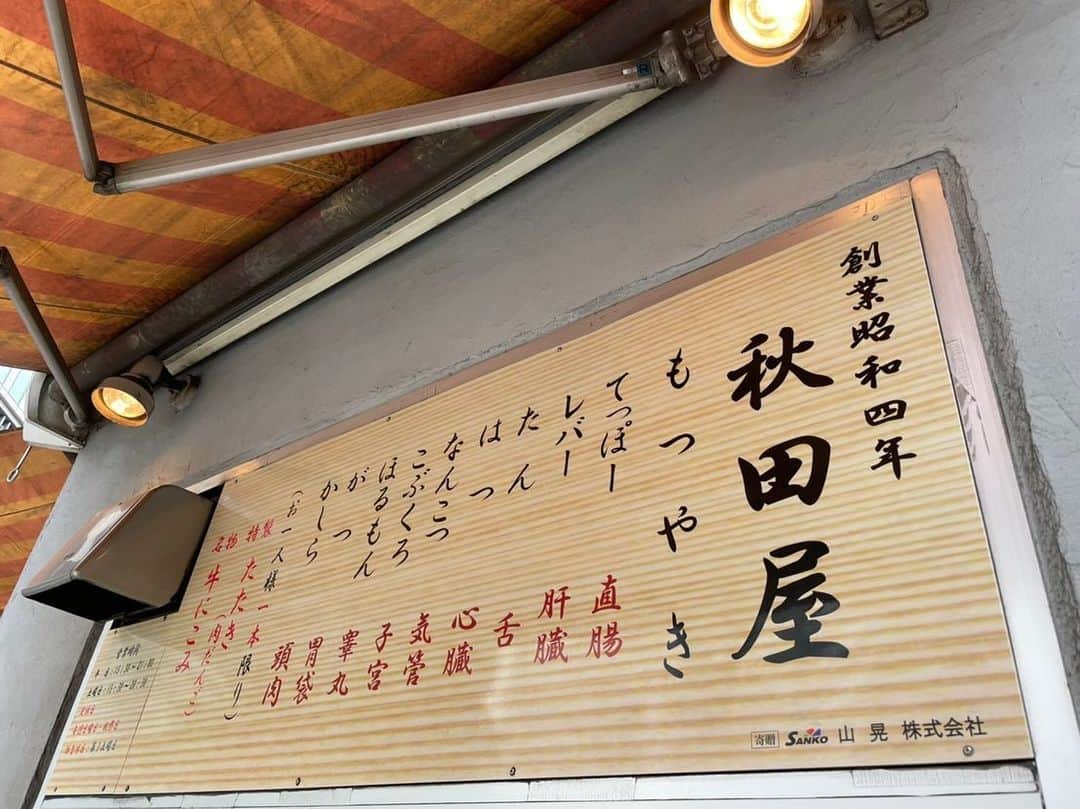 創業昭和四年
秋田屋
もつやき
てっぽー 直腸
レバー 肝臓
たん 舌
はつ 心臓
なんこつ 気管
こぶくろ 子宮
ほるもん 睾丸
がつ 胃袋
かしら 頭肉
(お一人様一本限り)
特製 たたき(肉だんご)
名物 牛にこみ
営業時間
寄贈 SANKO 山晃 株式会社